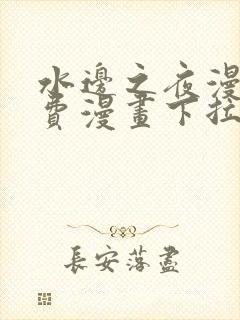 水邊之夜漫
費漫畫下拉
長安落盡